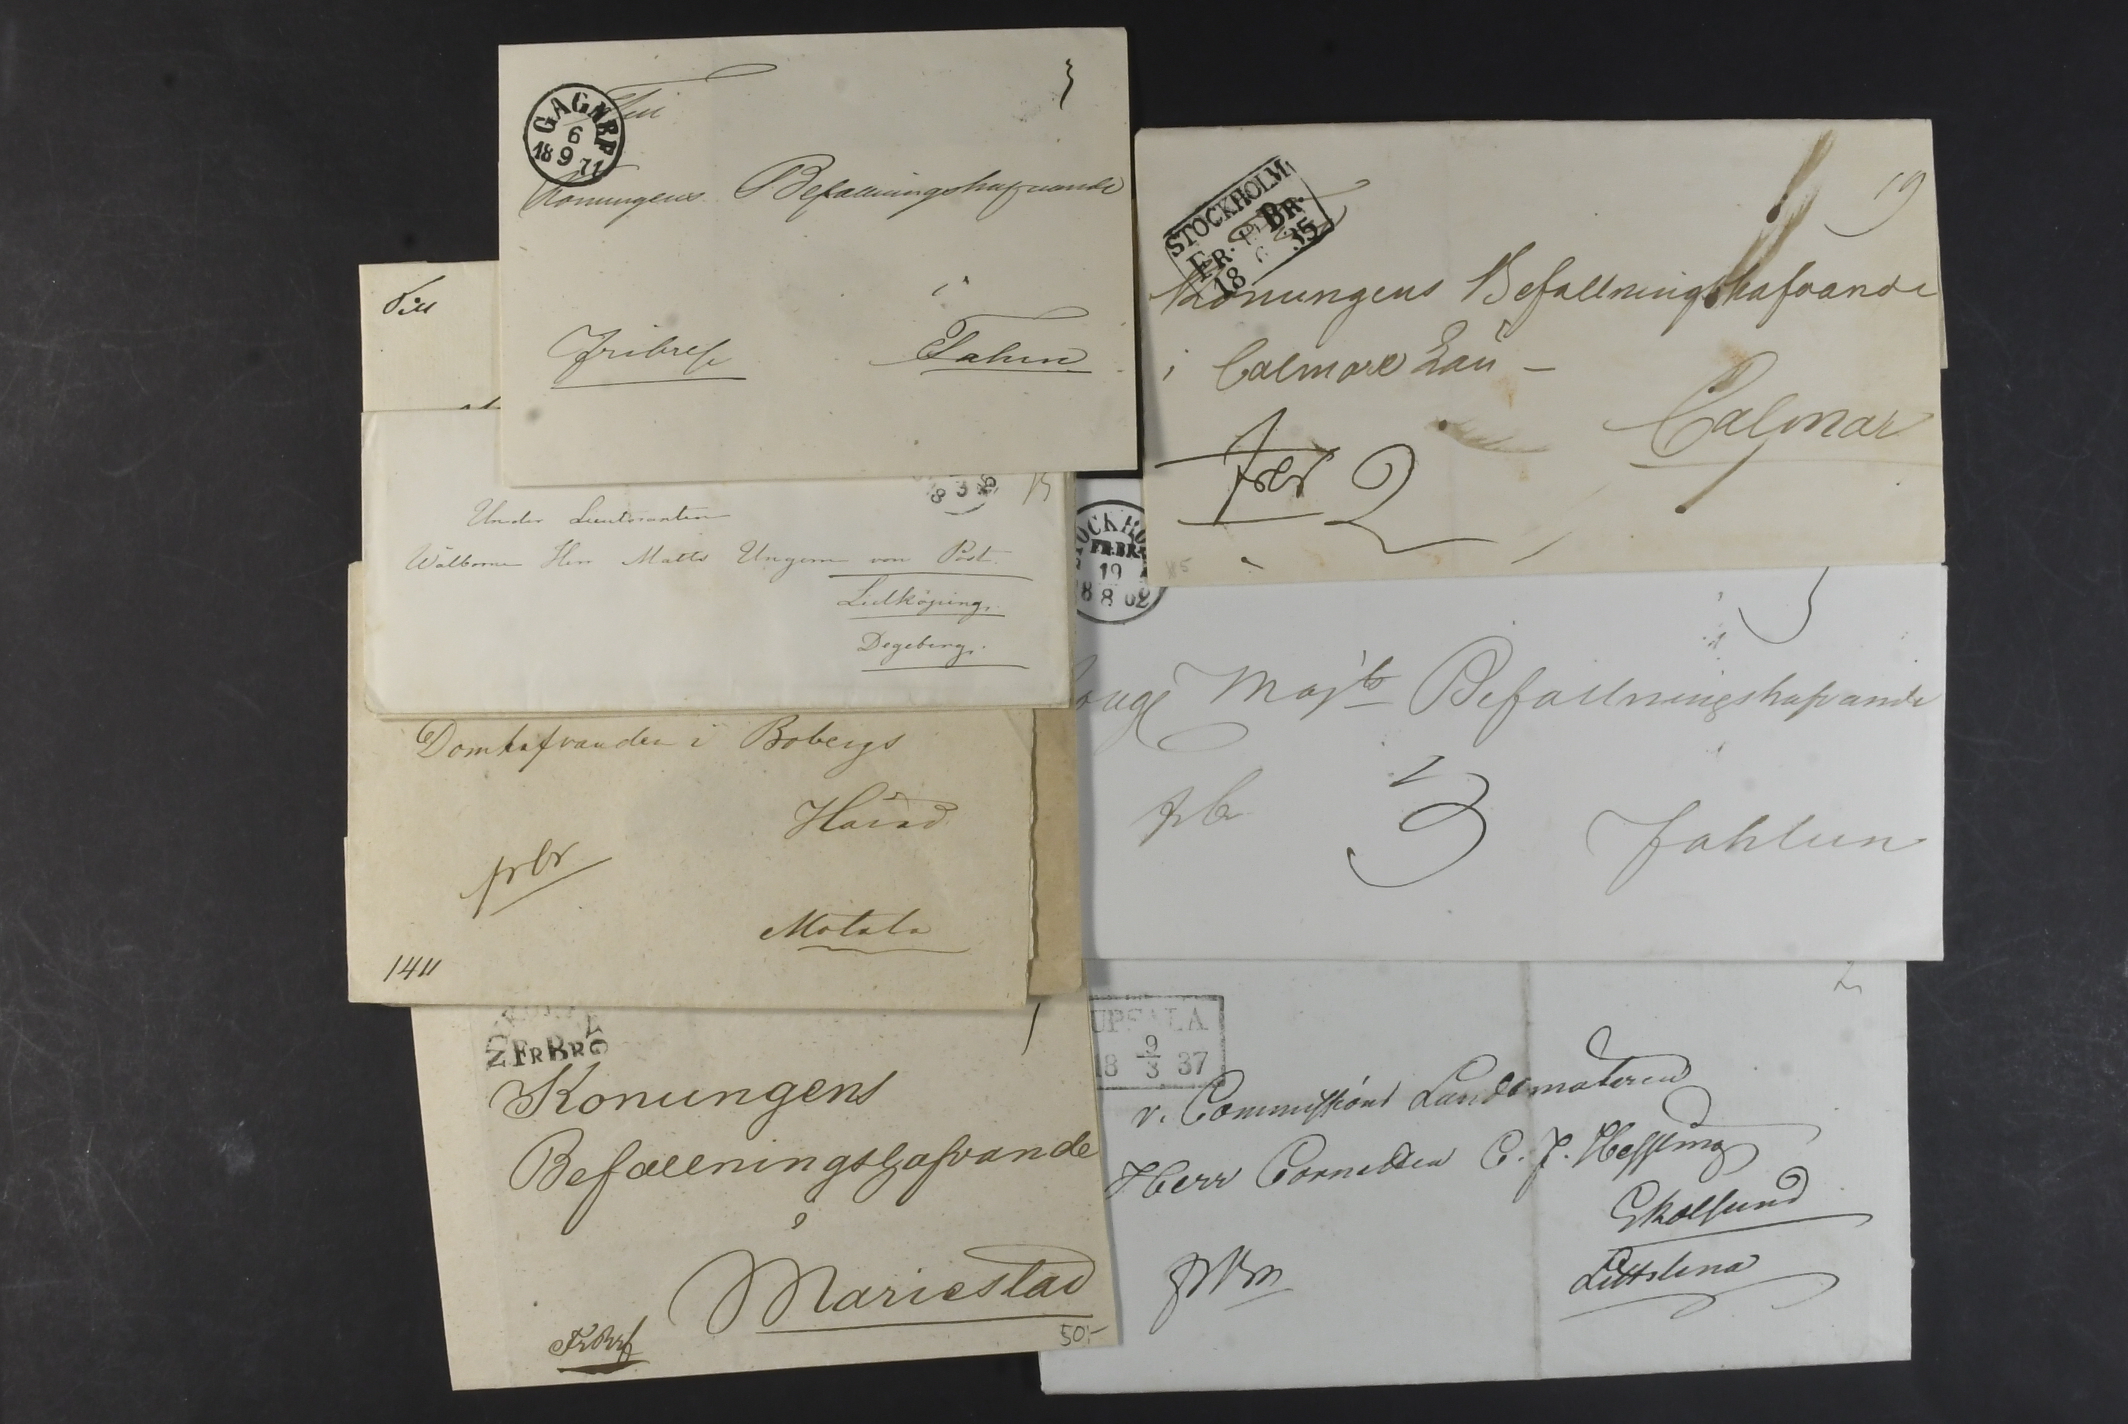 GAGNEF
6
18 9 71
Till
Konungens Befallningshafvande
i
Fribref Fahun
Till
Under Lieutenanten
Wälborne Herr Matts Ungern von Post
Lidköping,
Degeberg.
Domhafvanden i Bobergs
Härad
frbr
Motala
1411
FR BR
Konungens
Befallningshafvande
i
Mariestad
FrBref
50:-
STOCKHOLM
FR. BR.
18 35
19
Konungens Befallningshafvande
i Calmare Län –
Calmar
frbr 2
STOCKHO
FR.BR
19
18 8 62
Majts Befallningshafvande
frbr 3 Fahlun
UPSALA
18 9/3 37
2
v. Commissions Landtmätaren
Herr Cornetten C. J. Hessling
Ekolsund
Littslena